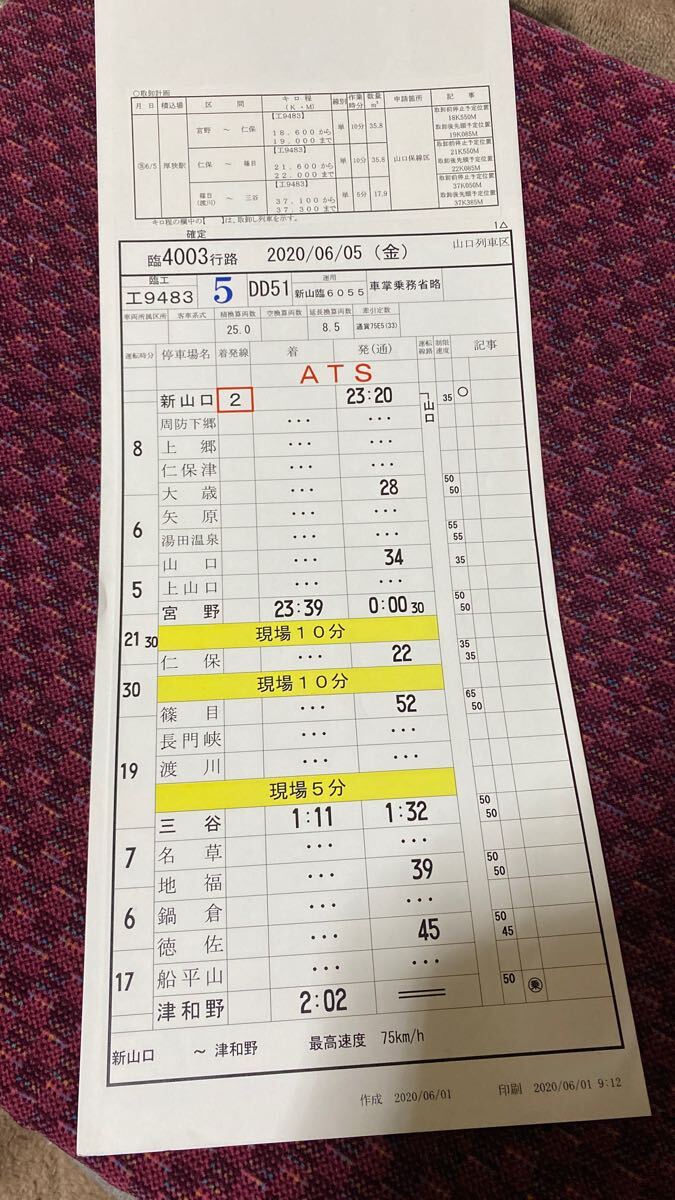 ○取卸計画
月 日 積込場 区 間 キ ロ 程 (K・M) 線別 作業時分 数量 m³ 申請箇所 記 事
㋮6/5 厚狭駅 宮野 ～ 仁保 【工9483】 18.600から 19.000まで 単 10分 35.8 山口保線区 取卸前停止予定位置 18K550M 取卸後先頭予定位置 19K085M
仁保 ～ 篠目 【工9483】 21.600から 22.000まで 単 10分 35.8 取卸前停止予定位置 21K550M 取卸後先頭予定位置 22K085M
篠目 (渡川) ～ 三谷 【工9483】 37.100から 37.300まで 単 5分 17.9 取卸前停止予定位置 37K050M 取卸後先頭予定位置 37K385M
キロ程の欄中の【 】は、取卸し列車を示す。
1△
確定
臨4003行路 2020/06/05 (金) 山口列車区
臨工
工9483 5 DD51 運用 新山臨6055 車掌乗務省略
車両所属区所 客車系式 積換算両数 空換算両数 延長換算両数 牽引定数
25.0 8.5 通貨75E5(33)
運転時分 停車場名 着発線 着 発(通) 運転線路 制限速度 記事
ATS
新山口 2 23:20 山口 35 ○
周防下郷 ・・・ ・・・
8 上 郷 ・・・ ・・・
仁保津 ・・・ ・・・
大 歳 ・・・ 28 50 50
6 矢 原 ・・・ ・・・
湯田温泉 ・・・ ・・・ 55 55
山 口 ・・・ 34 35
5 上山口 ・・・ ・・・
宮 野 23:39 0:00 30 50 50
21 30 現場10分
仁 保 ・・・ 22 35 35
30 現場10分
篠 目 ・・・ 52 65 50
長門峡 ・・・ ・・・
19 渡 川 ・・・ ・・・
現場5分
三 谷 1:11 1:32 50 50
7 名 草 ・・・ ・・・
地 福 ・・・ 39 50 50
6 鍋 倉 ・・・ ・・・
徳 佐 ・・・ 45 50 45
17 船平山 ・・・ ・・・
津和野 2:02 50 ㊛
新山口 ～ 津和野 最高速度 75km/h
作成 2020/06/01 印刷 2020/06/01 9:12